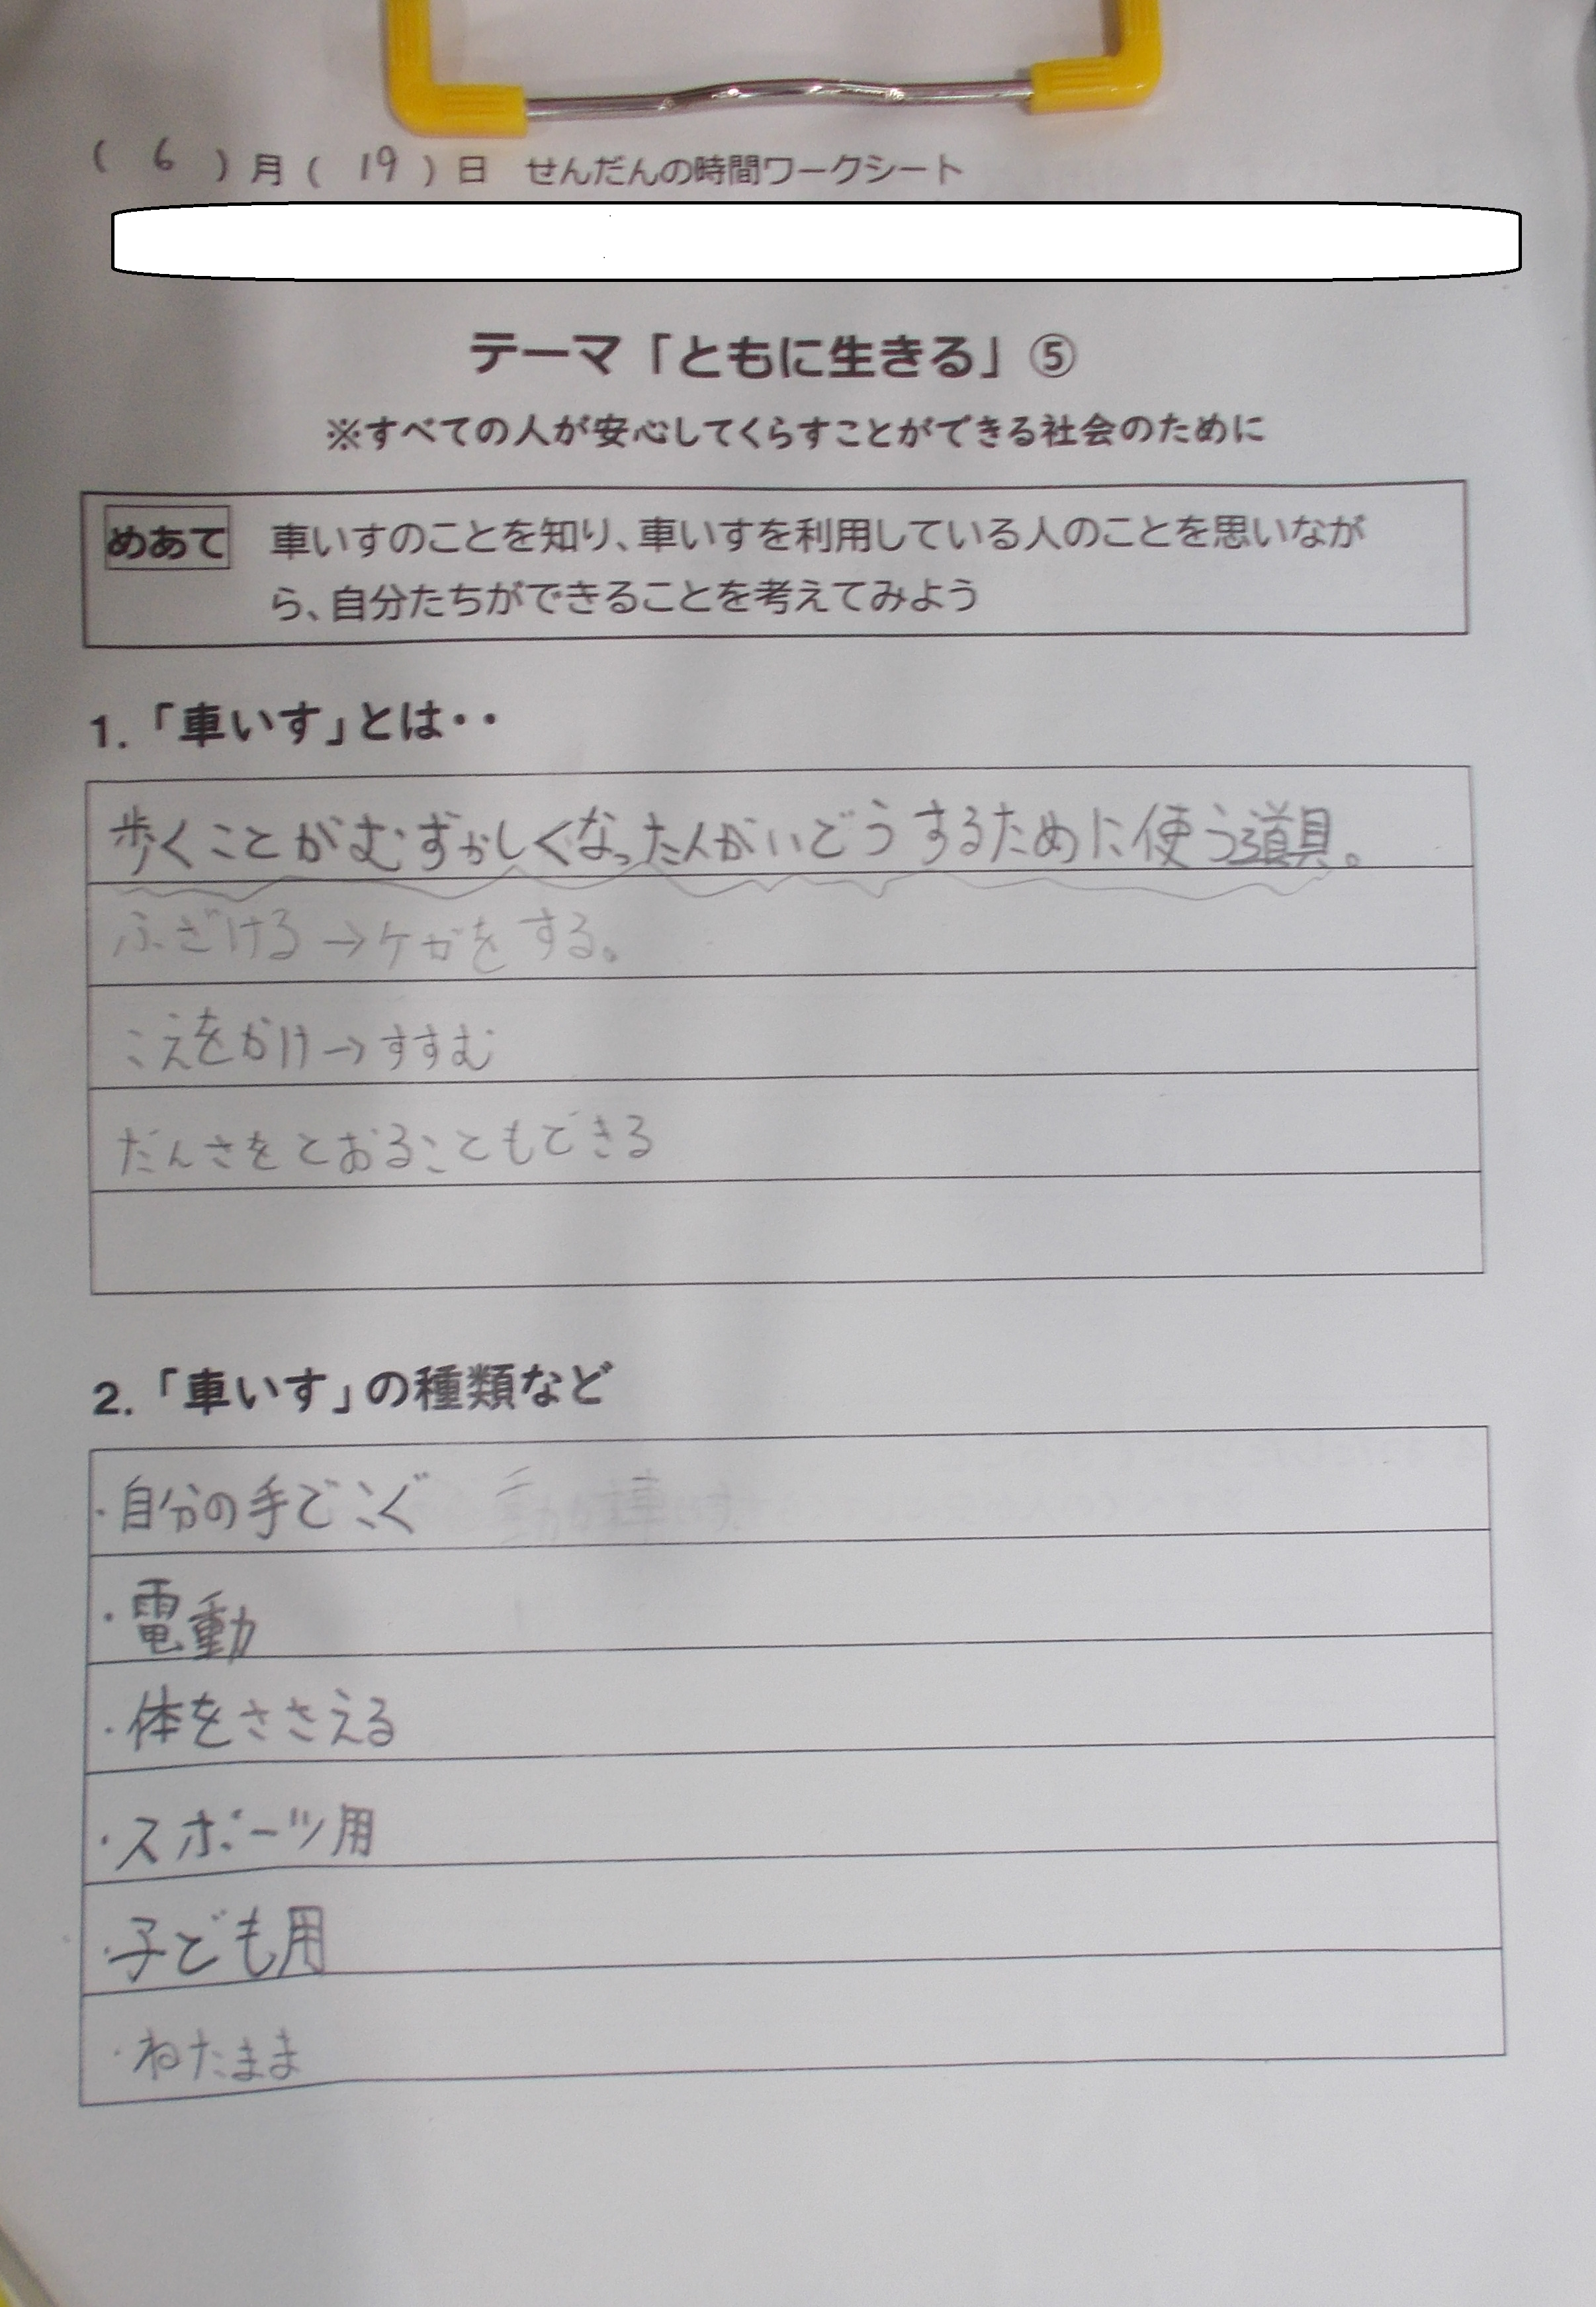 ( 6 )月( 19 )日 せんだんの時間ワークシート
テーマ「ともに生きる」⑤
※すべての人が安心してくらすことができる社会のために
めあて 車いすのことを知り、車いすを利用している人のことを思いなが
ら、自分たちができることを考えてみよう
1.「車いす」とは・・
歩くことがむずかしくなった人がいどうするために使う道具。
ふざける→ケガをする。
こえをかけ→すすむ
だんさをとおることもできる
2.「車いす」の種類など
・自分の手でこぐ
・電動
・体をささえる
・スポーツ用
・子ども用
・ねたまま